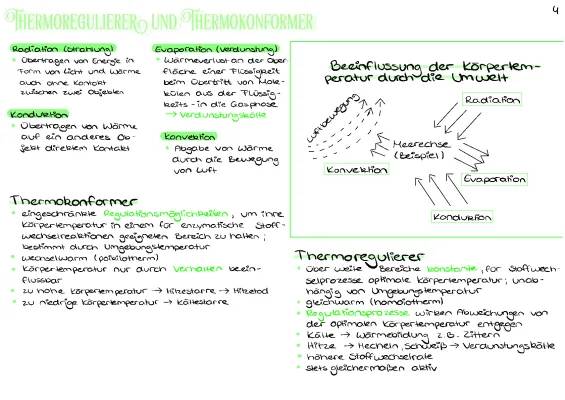 THERMOREGULIERER UND THERMOKONFORMER
4
Radiation (Strahlung)
Übertragen von Energie in
Form von Licht und Wärme
auch ohne Kontakt
zwischen zwei Objekten
Konduktion
Übertragen von Wärme
auf ein anderes Ob-
jekt direktem Kontakt
Evaporation (Verdunstung)
Wärmeverlust an der Ober
fläche einer Flüssigkeit
beim Übertritt von Mole-
külen aus der Flüssig-
keits- in die Gasphase
→ Verdunstungskälte
Konvektion
Abgabe von Wärme
durch die Bewegung
von Luft
Beeinflussung der Körpertem-
peratur durch die Umwelt
Luftbewegung
Radiation
Meerechse
(Beispiel)
Konvektion
Evaporation
Konduktion
Thermokonformer
eingeschränkte Regulationsmöglichkeiten, um ihre
Körpertemperatur in einem für enzymatische Stoff-
wechselreaktionen geeigneten Bereich zu halten;
bestimmt durch Umgebungstemperatur
wechselwarm (poikilotherm)
Körpertemperatur nur durch Verhalten beein-
flussbar
zu hohe Körpertemperatur → Hitzestarre → Hitzetod
zu niedrige Körpertemperatur → Kältestarre
Thermoregulierer
über weite Bereiche konstante, für Stoffwech-
selprozesse optimale Körpertemperatur; unab-
hängig von Umgebungstemperatur
gleichwarm (homoiotherm)
Regulationsprozesse wirken Abweichungen von
der optimalen Körpertemperatur entgegen
Kälte → Wärmebildung z.B. Zittern
Hitze → Hecheln, Schweiß → Verdunstungskälte
höhere Stoffwechselrate
stets gleichermaßen aktiv